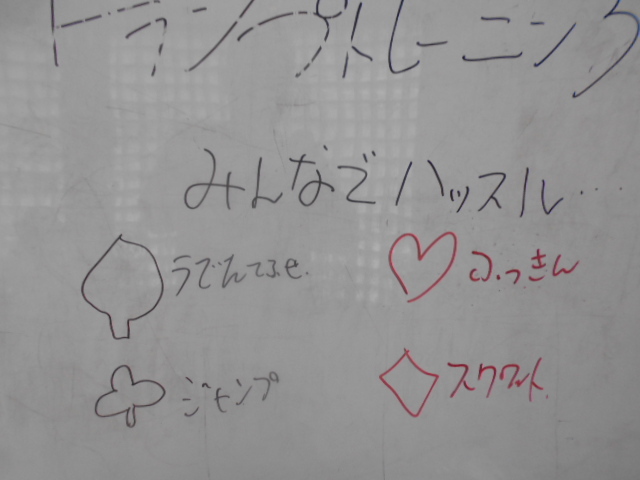 トランプトレーニング
みんなでハッスル…
うでたてふせ.
ふっきん
ジャンプ
スクワット